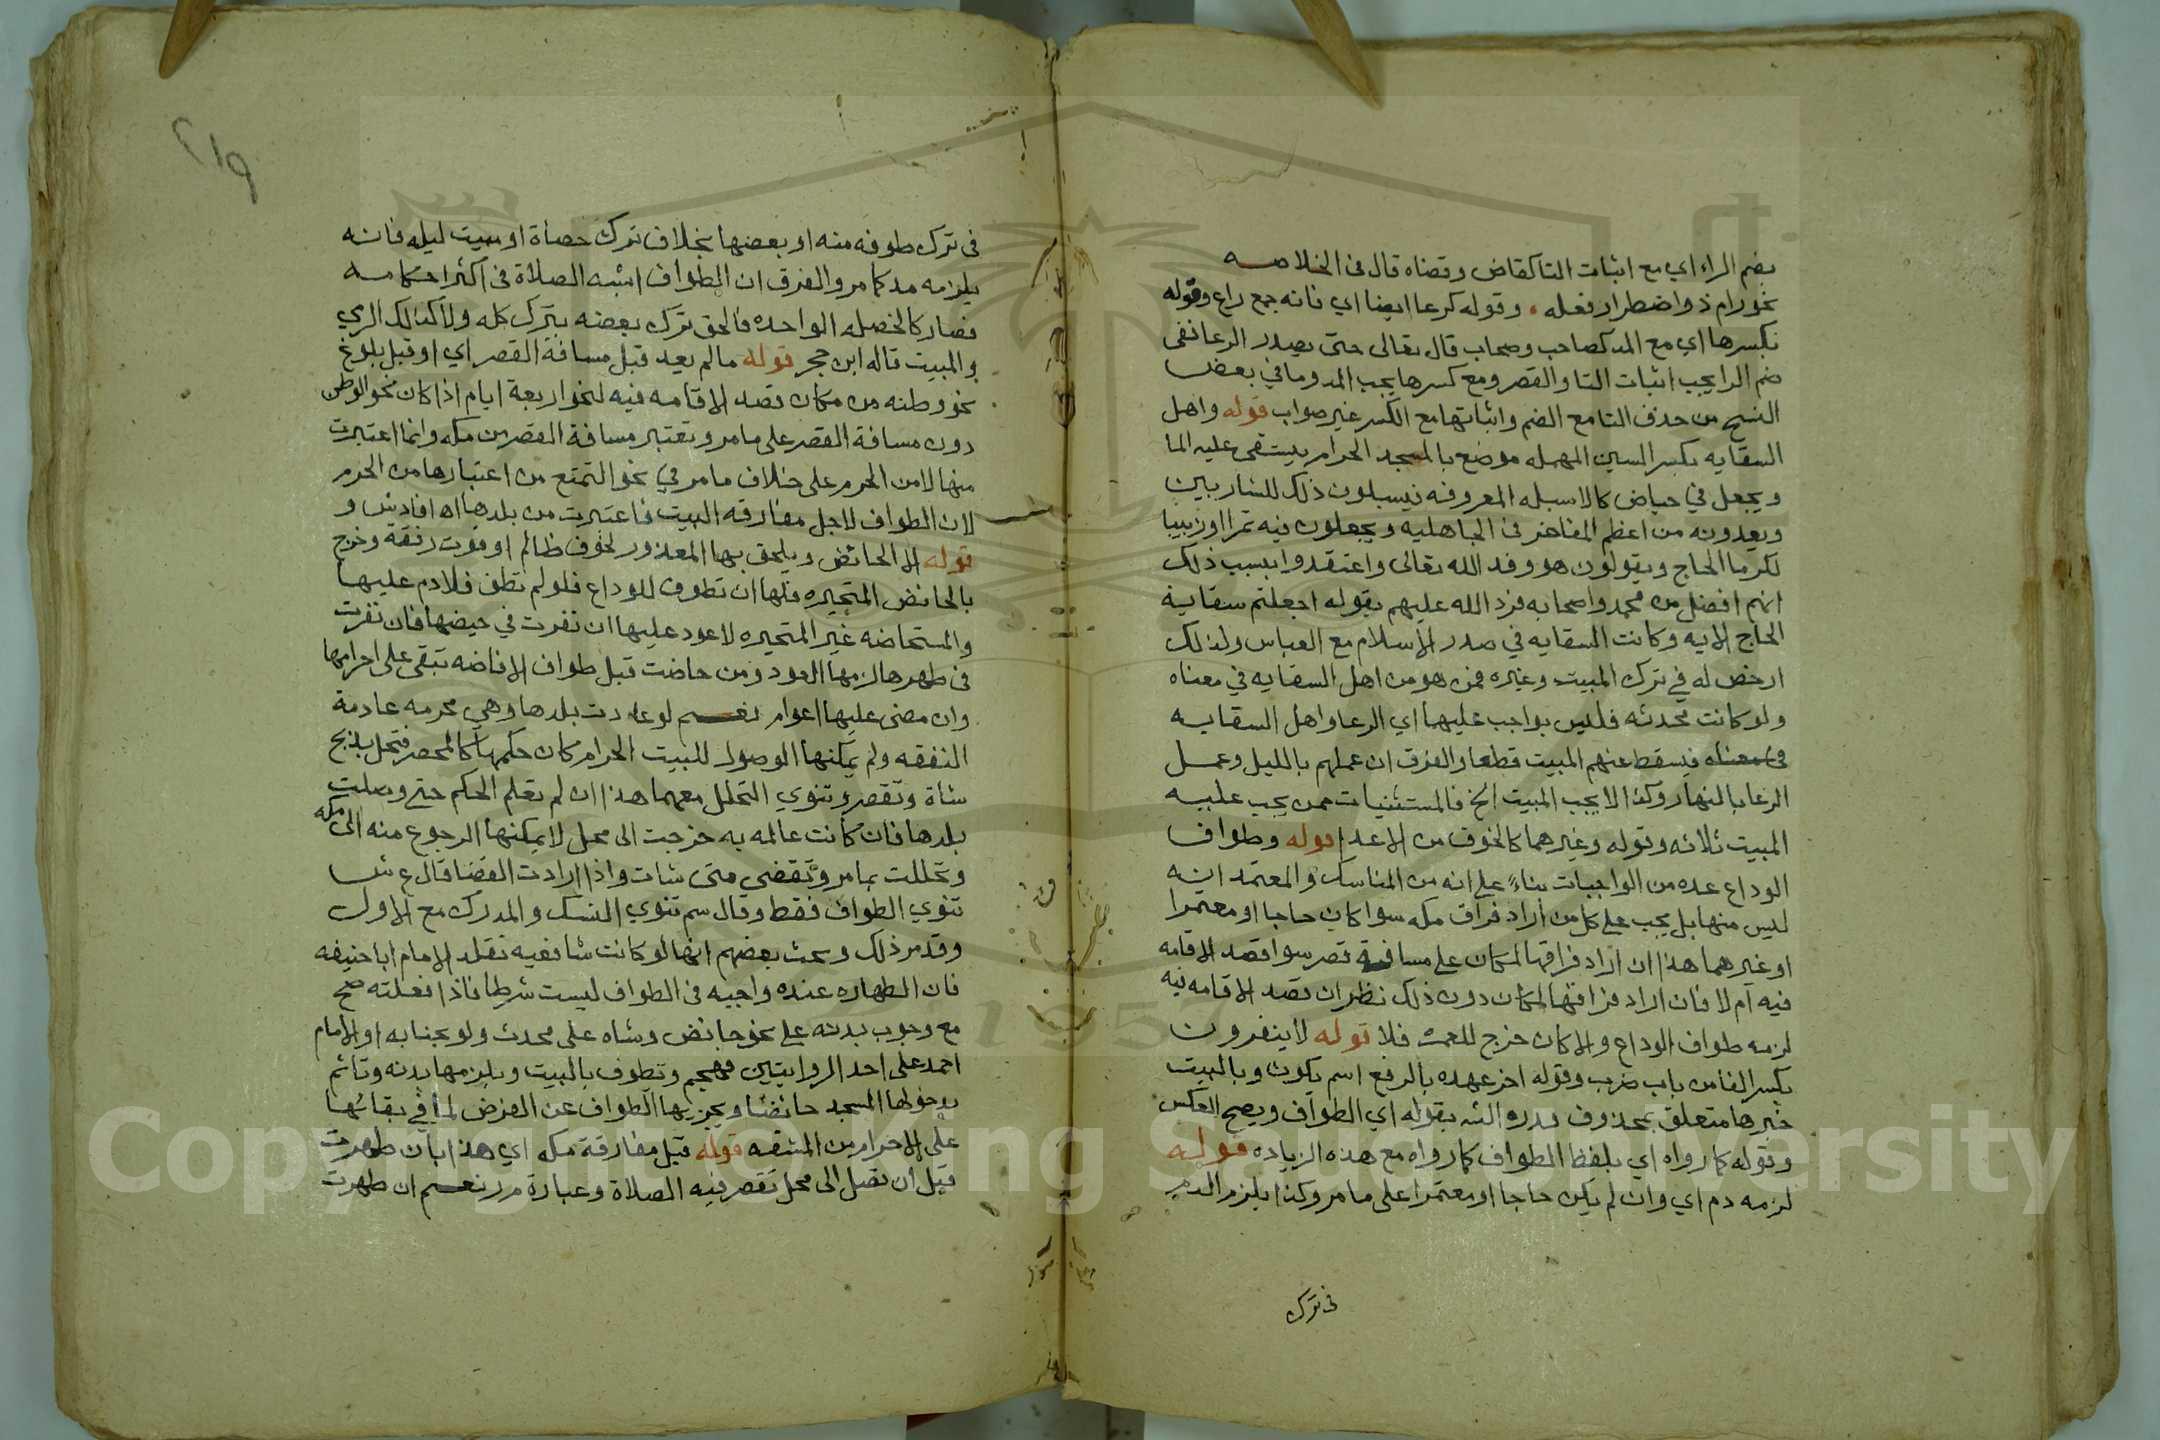 بضم الراء اي مع اثبات التا كقاض وقضاه قال في الخلاصه
نحو رام ذو اضطراد فعله وقوله كرعا ايضا اي فانه جمع راع وقوله
بكسرها اي مع المد كصاحب وصحاب قال تعالى حتى يصدر الرعا ففى
ضم الرا يجب اثبات التا والقصر ومع كسرها يجب المد وما في بعض
النسخ من حذف التا مع الضم واثباتها مع الكسر غير صواب قوله واهل
السقايه بكسر السين المهمله موضع بالمسجد الحرام يستقى عليه الما
ويجعل في حياض كالاسبله المعروفه فيسبلون ذلك للشاربين
ويعدونه من اعظم المفاخر في الجاهليه ويجعلون فيه تمرا او زبيبا
لكرما الحاج ويقولون هو وفد الله تعالى واعتقدوا بسبب ذلك
انهم افضل من محمد واصحابه فرد الله عليهم بقوله اجعلتم سقاية
الحاج الايه وكانت السقايه في صدر الاسلام مع العباس ولذلك
ارخص له في ترك المبيت وغيره ممن هو من اهل السقايه في معناه
ولو كانت محدثه فليس بواجب عليهما اي الرعا واهل السقايه
في معناه فيسقط عنهم المبيت قطعا والفرق ان عملهم بالليل وعمل
الرعا بالنهار وكذا لا يجب المبيت الخ فالمستثنيات ممن يجب عليه
المبيت ثلاثه وقوله وغيرهما كالخوف من الاعدا قوله وطواف
الوداع عده من الواجبات بناءً على انه من المناسك والمعتمد انه
ليس منها بل يجب على كل من اراد فراق مكه سوا كان حاجا او معتمرا
او غيرهما هذا ان اراد فراقها لمكان على مسافة قصر سوا قصد الاقامه
فيه ام لا فان اراد فراقها لمكان دون ذلك نظر ان قصد الاقامه فيه
لزمه طواف الوداع والا كان خرج للعمرة فلا قوله لا ينفرون
بكسر الفا من باب ضرب وقوله اخر عهده بالرفع اسم يكون وبالبيت
خبرها متعلق بمحذوف قدره الشـ بقوله اي الطواف ويصح العكس
وقوله كما رواه اي بلفظ الطواف كما رواه مع هذه الزياده قوله
لزمه دم اي وان لم يكن حاجا او معتمرا على ما مر وكذا يلزم الدم
في ترك
في ترك طوفه منه او بعضها بخلاف ترك حصاة او مبيت ليله فانه
يلزمه مد كما مر والفرق ان الطواف اشبه الصلاة في اكثر احكامه
فصار كالخصله الواحده فالحق ترك بعضه بترك كله ولا كذلك الرمي
والمبيت قاله ابن حجر قوله ما لم يعد قبل مسافة القصر اي او قبل بلوغ
نحو وطنه من مكان قصد الاقامه فيه لنحو اربعة ايام اذا كان نحو الوطن
دون مسافة القصر على ما مر وتعتبر مسافة القصر من مكه وانما اعتبرت
منها لا من الحرم على خلاف ما مر في نحو التمتع من اعتبارها من الحرم
لان الطواف لاجل مفارقه البيت فاعتبرت من بلدها اه
قوله الا الحائض ويلحق بها المعذور لخوف ظالم او فوت رفقة وخرج
بالحائض المتحيره فلها ان تطوف للوداع فلو لم تطف فلا دم عليها
والمستحاضه غير المتحيره لا عود عليها ان نفرت في حيضها فان نفرت
في طهرها لزمها العود ومن حاضت قبل طواف الافاضه تبقى على احرامها
وان مضى عليها اعوام نعم لو عادت بلدها وهي محرمه عادمة
النفقه ولم يمكنها الوصول للبيت الحرام كان حكمها كالمحصر فتحلل بذبح
شاة وتقصير وتنوي التحلل معهما هذا ان لم تعلم الحكم حتى وصلت
بلدها فان كانت عالمه به خرجت الى محل لا يمكنها الرجوع منه الى مكه
وتحللت بما مر وتقضي متى شات واذا ارادت القضا قال ع ش
تنوي الطواف فقط وقال سم تنوي النسك والمدرك مع الاول
وقد مر ذلك وبحث بعضهم انها لو كانت شافعيه تقلد الامام ابا حنيفه
فان الطهاره عنده واجبه في الطواف ليست شرطا فاذا فعلته صح
مع وجوب بدنه على نحو حائض وشاه على محدث ولو بجنابه او الامام
احمد على احد الروايتين فتهجم وتطوف بالبيت ويلزمها بدنه وتاثم
بدخولها المسجد حائضا ويجزيها الطواف عن الفرض لما في بقائها
على الاحرام من المشقه قوله قبل مفارقة مكه اي هذا بان طهرت
قبل ان تصل الى محل تقصر فيه الصلاة وعبارة م ر نعم ان طهرت
Copyright © King Saud University
1957